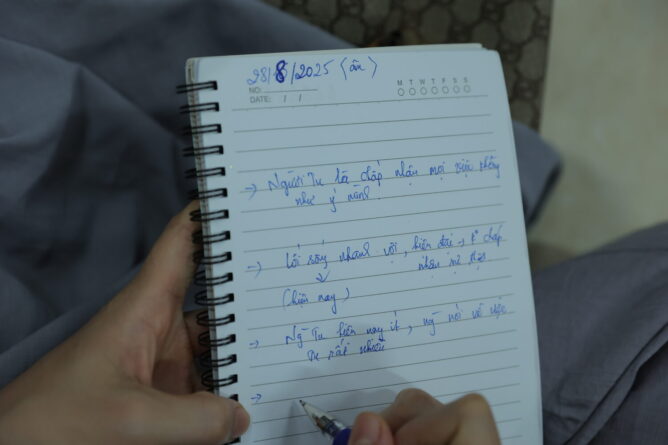 28/8/2025 (ân)
NO:
DATE: / /
M T W T F S S
→ Người Tu là chấp nhận mọi việc không
như ý mình.
→ Lối sống nhanh vội, hiện đại → k° chấp
nhận
(hiện nay)
→ Ng Tu hiện nay ít, ng nói về việc
Tu rất nhiều
→